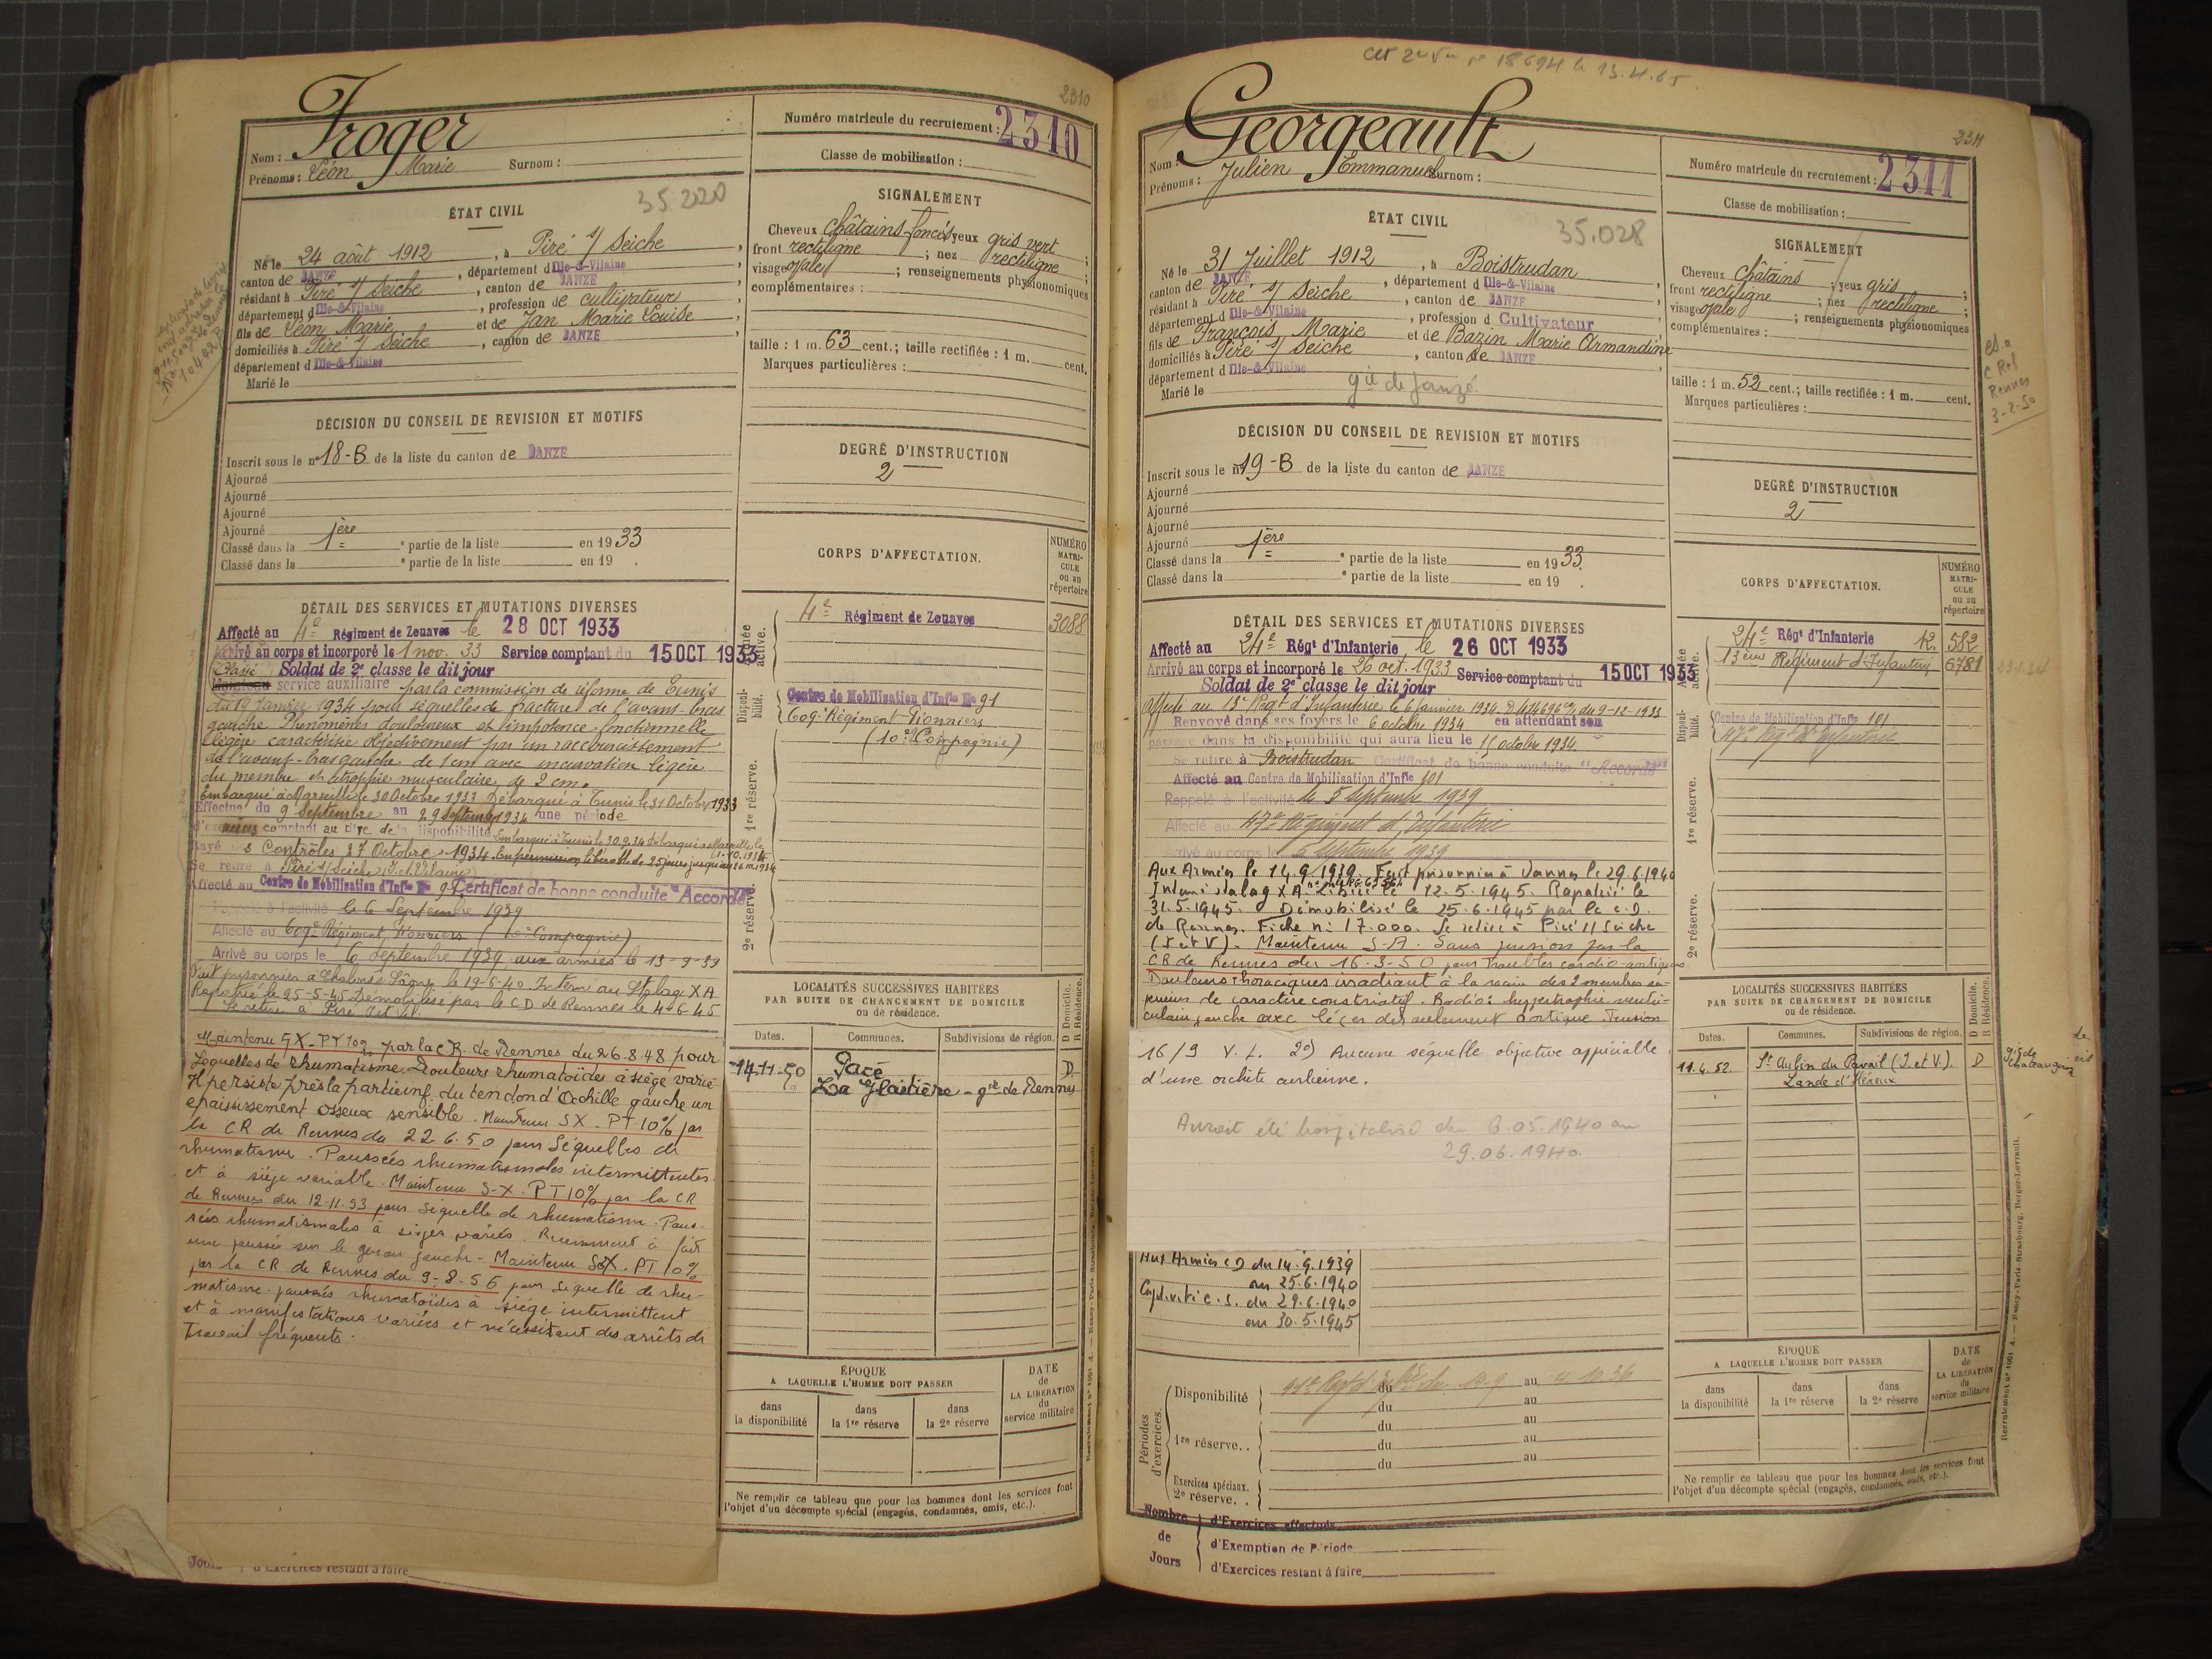 2310
Froger
Nom :
Prénoms : Léon Marie Surnom :
Numéro matricule du recrutement : 2310
Classe de mobilisation :
35.220
ÉTAT CIVIL
Né le 24 août 1912, à Piré s/ Seiche,
canton de JANZE, département d'Ille-&-Vilaine,
résidant à Piré s/ Seiche, canton de JANZE,
département d'Ille-&-Vilaine, profession de cultivateur,
fils de Léon Marie et de Jan Marie Louise,
domiciliés à Piré s/ Seiche, canton de JANZE,
département d'Ille-&-Vilaine
Marié le
SIGNALEMENT
Cheveux châtains foncés yeux gris vert ;
front rectiligne ; nez rectiligne ;
visage ovale ; renseignements physionomiques
complémentaires :
taille : 1 m. 63 cent.; taille rectifiée : 1 m. cent.
Marques particulières :
DÉCISION DU CONSEIL DE REVISION ET MOTIFS
Inscrit sous le n° 18-B de la liste du canton de JANZE
Ajourné
Ajourné
Ajourné
Ajourné
Classé dans la 1ère partie de la liste en 1933
Classé dans la e partie de la liste en 19 .
DEGRÉ D'INSTRUCTION
2
CORPS D'AFFECTATION.
NUMÉRO MATRICULE ou au répertoire
Armée active.
4e Régiment de Zouaves 3088
Disponibilité.
Centre de Mobilisation d'Infie No 91
609e Régiment Pionniers
(10e Compagnie)
1re réserve.
2e réserve.
DÉTAIL DES SERVICES ET MUTATIONS DIVERSES
Affecté au 4e Régiment de Zouaves le 28 OCT 1933
Arrivé au corps et incorporé le 1 nov. 33 Service comptant du 15 OCT 1933
Soldat de 2e classe le dit jour
Classé service auxiliaire par la commission de réforme de Tunis
du 19 Janvier 1934 pour séquelles de fracture de l'avant-bras
gauche Phénomènes douloureux et impotence fonctionnelle
légère caractérisée objectivement par un raccourcissement
de l'avant-bras gauche de 1 cm avec incurvation légère
du membre et atrophie musculaire de 2 cm.
Embarqué à Marseille le 30 Octobre 1933 Débarqué à Tunis le 31 Octobre 1933
Effectue du 9 Septembre au 29 Septembre 1934 une période
d'exercices comptant au titre de la disponibilité. Embarqué à Tunis le 30.9.34 Débarqué à Marseille le
1.10.1934
Rayé des Contrôles 27 Octobre 1934. En permission libérable de 25 jours jusqu'au 26.10.1934
Se retire à Piré s/Seiche, I. et Vilaine
Affecté au Centre de Mobilisation d'Infie No 91 Certificat de bonne conduite "Accordé"
Rappelé à l'activité le 6 Septembre 1939
Affecté au 609e Régiment Pionniers (10e Compagnie)
Arrivé au corps le 6 Septembre 1939, aux armées le 13-9-39
Fait prisonnier à Chalons s Saône le 19-6-40 Interné au Stalag XA
Rapatrié le 25-5-45 Démobilisé par le CD de Rennes le 4-6-45
Se retire à Piré I et V.
Maintenu SX - PT 10% par la CR. de Rennes du 26.8.48 pour
séquelles de rhumatisme. Douleurs rhumatoïdes à siège varié
Il persiste près la partie inf. du tendon d'Achille gauche un
épaississement osseux sensible. Maintenu SX. PT 10% par
la CR de Rennes du 22.6.50 pour séquelles de
rhumatisme. Poussées rhumatismales intermittentes
et à siège variable. Maintenu S-X. PT 10% par la CR
de Rennes du 12.11.53 pour séquelle de rhumatisme. Pous-
sées rhumatismales à sièges variés. Récemment a fait
une poussée sur le genou gauche - Maintenu SX. PT 10%
par la CR de Rennes du 9-8-56 pour séquelle de rhu-
matisme poussées rhumatoïdes à siège intermittent
et à manifestations variées et nécessitant des arrêts de
travail fréquents.
LOCALITÉS SUCCESSIVES HABITÉES
PAR SUITE DE CHANGEMENT DE DOMICILE
ou de résidence.
D Domicile. R Résidence.
Dates. Communes. Subdivisions de région.
14-11-50 Pacé D
La Glaitière - gie de Rennes
ÉPOQUE
A LAQUELLE L'HOMME DOIT PASSER
dans la disponibilité
dans la 1re réserve
dans la 2e réserve
DATE de LA LIBÉRATION du service militaire
Ne remplir ce tableau que pour les hommes dont les services font
l'objet d'un décompte spécial (engagés, condamnés, omis, etc.).
Jours d'Exercices restant à faire
18694 le 13.4.65
2311
Georgeault
Nom :
Prénoms : Julien Emmanuel Surnom :
Numéro matricule du recrutement : 2311
Classe de mobilisation :
35.028
ÉTAT CIVIL
Né le 31 Juillet 1912, à Boistrudan
canton de JANZE, département d'Ille-&-Vilaine
résidant à Piré s/ Seiche, canton de JANZE
département d'Ille-&-Vilaine, profession d Cultivateur
fils de François Marie et de Bazin Marie Armandine
domiciliés à Piré s/ Seiche, canton de JANZE
département d'Ille-&-Vilaine
Marié le gie de Janzé
SIGNALEMENT
Cheveux châtains ; yeux gris ;
front rectiligne ; nez rectiligne ;
visage ovale ; renseignements physionomiques
complémentaires :
taille : 1 m. 52 cent.; taille rectifiée : 1 m. cent.
Marques particulières :
Rennes
3-2-50
DÉCISION DU CONSEIL DE REVISION ET MOTIFS
Inscrit sous le n° 19-B de la liste du canton de JANZE
Ajourné
Ajourné
Ajourné
Ajourné
Classé dans la 1ère partie de la liste en 1933.
Classé dans la e partie de la liste en 19 .
DEGRÉ D'INSTRUCTION
2
CORPS D'AFFECTATION.
NUMÉRO MATRICULE ou au répertoire
Armée active.
24e Régt d'Infanterie 12. 582
13ème Régiment d'Infanterie 6781
Disponibilité.
Centre de Mobilisation d'Infie 101
47e Rég. d'Infanterie
1re réserve.
2e réserve.
DÉTAIL DES SERVICES ET MUTATIONS DIVERSES
Affecté au 24e Régt d'Infanterie, le 26 OCT 1933
Arrivé au corps et incorporé le 26 oct. 1933 Service comptant du 15 OCT 1933
Soldat de 2e classe le dit jour
Affecté au 13e Régt d'Infanterie le 6 janvier 1934. du 9-12-1933
Renvoyé dans ses foyers le 6 octobre 1934 en attendant son
passage dans la disponibilité qui aura lieu le 15 octobre 1934.
Se retire à Boistrudan Certificat de bonne conduite "Accordé"
Affecté au Centre de Mobilisation d'Infie 101
Rappelé à l'activité le 5 septembre 1939
Affecté au 47e Régiment d'Infanterie
Arrivé au corps le 5 septembre 1939
Aux Armées le 14.9.1939. Fait prisonnier à Vannes le 29.6.1940
Interné stalag XA Libéré le 12.5.1945. Rapatrié le
31.5.1945. Démobilisé le 25.6.1945 par le C.D.
de Rennes. Fiche n° 17.000. Se retire à Piré s/ Seiche
(I et V). Maintenu S-A. Sans pension par la
CR de Rennes du 16-3-50 pour troubles cardio-aortiques
Douleurs thoraciques irradiant à la racine des 2 membres su-
périeurs de caractère constrictif. Radio: hypertrophie ventri-
culaire gauche avec léger déroulement aortique. Tension
16/9 V.L. 2°) Aucune séquelle objective appréciable
d'une orchite ourlienne.
Aurait été hospitalisé du 6.05.1940 au
29.06.1940.
Aux Armées CD du 14.9.1939
au 25.6.1940
Captivité C.S. du 29.6.1940
au 30.5.1945
Périodes d'exercices.
Disponibilité 41e Régt d'Infie du 14-9 au 4 10 36
du au
1re réserve. . du au
du au
du au
Exercices spéciaux.
2e réserve. .
Nombre de Jours
d'Exercices effectués
d'Exemption de Période
d'Exercices restant à faire
LOCALITÉS SUCCESSIVES HABITÉES
PAR SUITE DE CHANGEMENT DE DOMICILE
ou de résidence.
D Domicile. R Résidence.
Dates. Communes. Subdivisions de région.
11.4.52. St Aubin du Pavail (I. et V.). D
Lande d'Héreux
gie de Chateaugiron
ÉPOQUE
A LAQUELLE L'HOMME DOIT PASSER
dans la disponibilité
dans la 1re réserve
dans la 2e réserve
DATE de LA LIBÉRATION du service militaire
Ne remplir ce tableau que pour les hommes dont les services font
l'objet d'un décompte spécial (engagés, condamnés, omis, etc.).